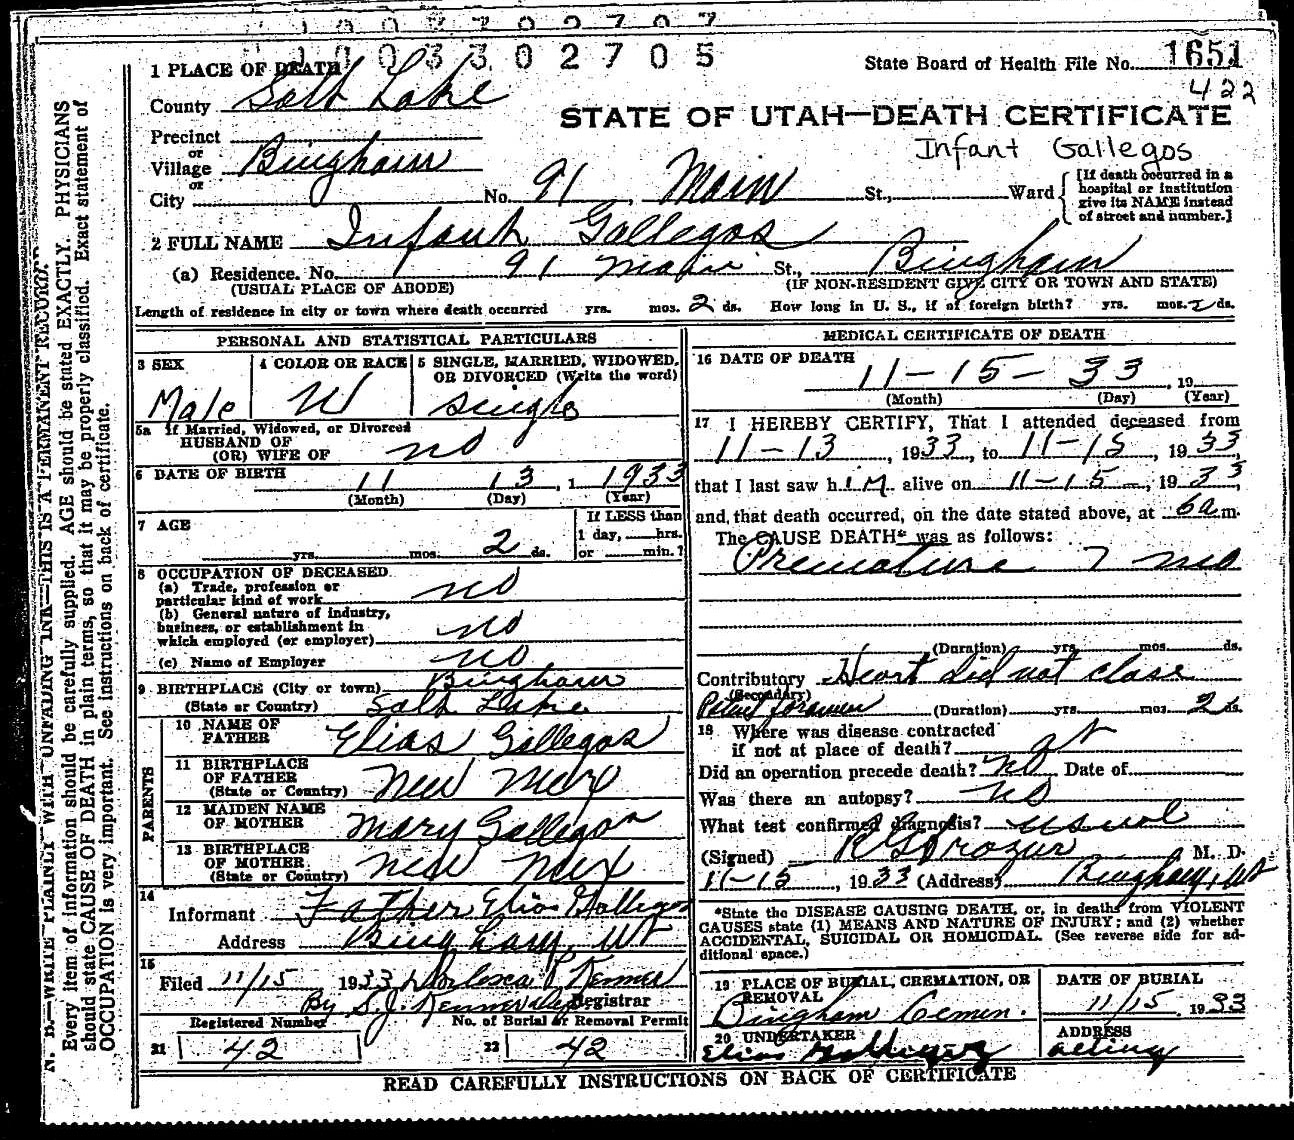 1003302705
State Board of Health File No. 1651
422
1 PLACE OF DEATH
County Salt Lake
STATE OF UTAH—DEATH CERTIFICATE
Infant Gallegos
Precinct
or
Village Bingham
or
City No. 91 Main St., Ward
[If death occurred in a hospital or institution give its NAME instead of street and number.]
2 FULL NAME Infant Gallegos
(a) Residence. No. 91 Main St., Bingham
(USUAL PLACE OF ABODE) (IF NON-RESIDENT GIVE CITY OR TOWN AND STATE)
Length of residence in city or town where death occurred yrs. mos. 2 ds. How long in U. S., if of foreign birth? yrs. mos. 2 ds.
PERSONAL AND STATISTICAL PARTICULARS
3 SEX
Male
4 COLOR OR RACE
W
5 SINGLE, MARRIED, WIDOWED, OR DIVORCED (Write the word)
Single
5a If Married, Widowed, or Divorced
HUSBAND OF
(OR) WIFE OF no
6 DATE OF BIRTH 11 13, 1933
(Month) (Day) (Year)
7 AGE
yrs. mos. 2 ds.
If LESS than
1 day, hrs.
or min.?
8 OCCUPATION OF DECEASED
(a) Trade, profession or
particular kind of work no
(b) General nature of industry,
business, or establishment in
which employed (or employer) no
(c) Name of Employer no
9 BIRTHPLACE (City or town) Bingham
(State or Country) Salt Lake
PARENTS
10 NAME OF
FATHER Elias Gallegos
11 BIRTHPLACE
OF FATHER
(State or Country) New Mex
12 MAIDEN NAME
OF MOTHER Mary Gallegos
13 BIRTHPLACE
OF MOTHER
(State or Country) New Mex
14
Informant Father Elias Gallegos
Address Bingham, Ut
15
Filed 11/15 1933 Kenner
By S.J. Kenner Registrar
Registered Number No. of Burial or Removal Permit
21 42 22 42
MEDICAL CERTIFICATE OF DEATH
16 DATE OF DEATH
11-15-33, 19
(Month) (Day) (Year)
17 I HEREBY CERTIFY, That I attended deceased from
11-13, 1933, to 11-15, 1933,
that I last saw him alive on 11-15-, 1933,
and that death occurred, on the date stated above, at 6a m.
The CAUSE DEATH* was as follows:
Premature 7 mo
(Duration) yrs. mos. ds.
Contributory Heart did not close
(Secondary)
Patent foramen (Duration) yrs. mos. 2 ds.
18 Where was disease contracted
if not at place of death? at
Did an operation precede death? no Date of
Was there an autopsy? no
What test confirmed diagnosis? usual
(Signed) M. D.
11-15, 1933 (Address) Bingham, Ut
*State the DISEASE CAUSING DEATH, or, in deaths from VIOLENT
CAUSES state (1) MEANS AND NATURE OF INJURY; and (2) whether
ACCIDENTAL, SUICIDAL OR HOMICIDAL. (See reverse side for ad-
ditional space.)
19 PLACE OF BURIAL, CREMATION, OR
REMOVAL
Bingham Cemen.
DATE OF BURIAL
11/15, 1933
20 UNDERTAKER
Elias Gallegos
ADDRESS
acting
READ CAREFULLY INSTRUCTIONS ON BACK OF CERTIFICATE
N. B.—WRITE PLAINLY WITH UNFADING INK—THIS IS A PERMANENT RECORD.
Every item of information should be carefully supplied. AGE should be stated EXACTLY. PHYSICIANS
should state CAUSE OF DEATH in plain terms, so that it may be properly classified. Exact statement of
OCCUPATION is very important. See instructions on back of certificate.